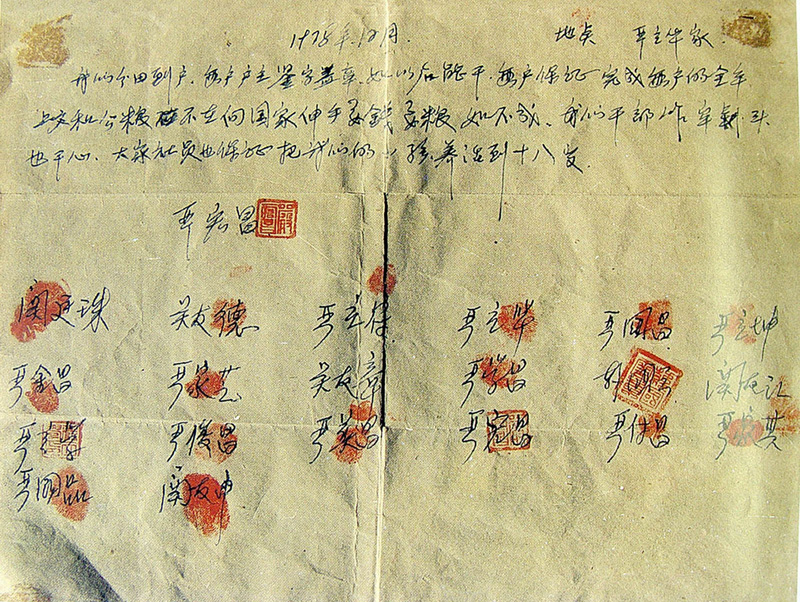 1978年12月. 地点 严立华家.
我们分田到户,每户户主签字盖章,如以后能干,每户保证完成每户的全年
上交和公粮不在向国家伸手要钱要粮如不成,我们干部作牢杀头
也干心,大家社员也保证把我们的小孩养活到十八岁.
严宏昌
关廷珠 关友德 严立符 严立华 严国昌 严立坤
严金昌 严家芝 关友章 严学昌 韩国云 关友江
严立学 严俊昌 严美昌 严宏昌 严付昌 严家其
严国品 关友申